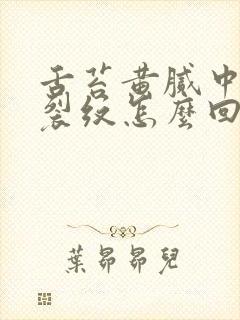 舌苔黄腻中
裂纹怎麼回
葉昴昴兒